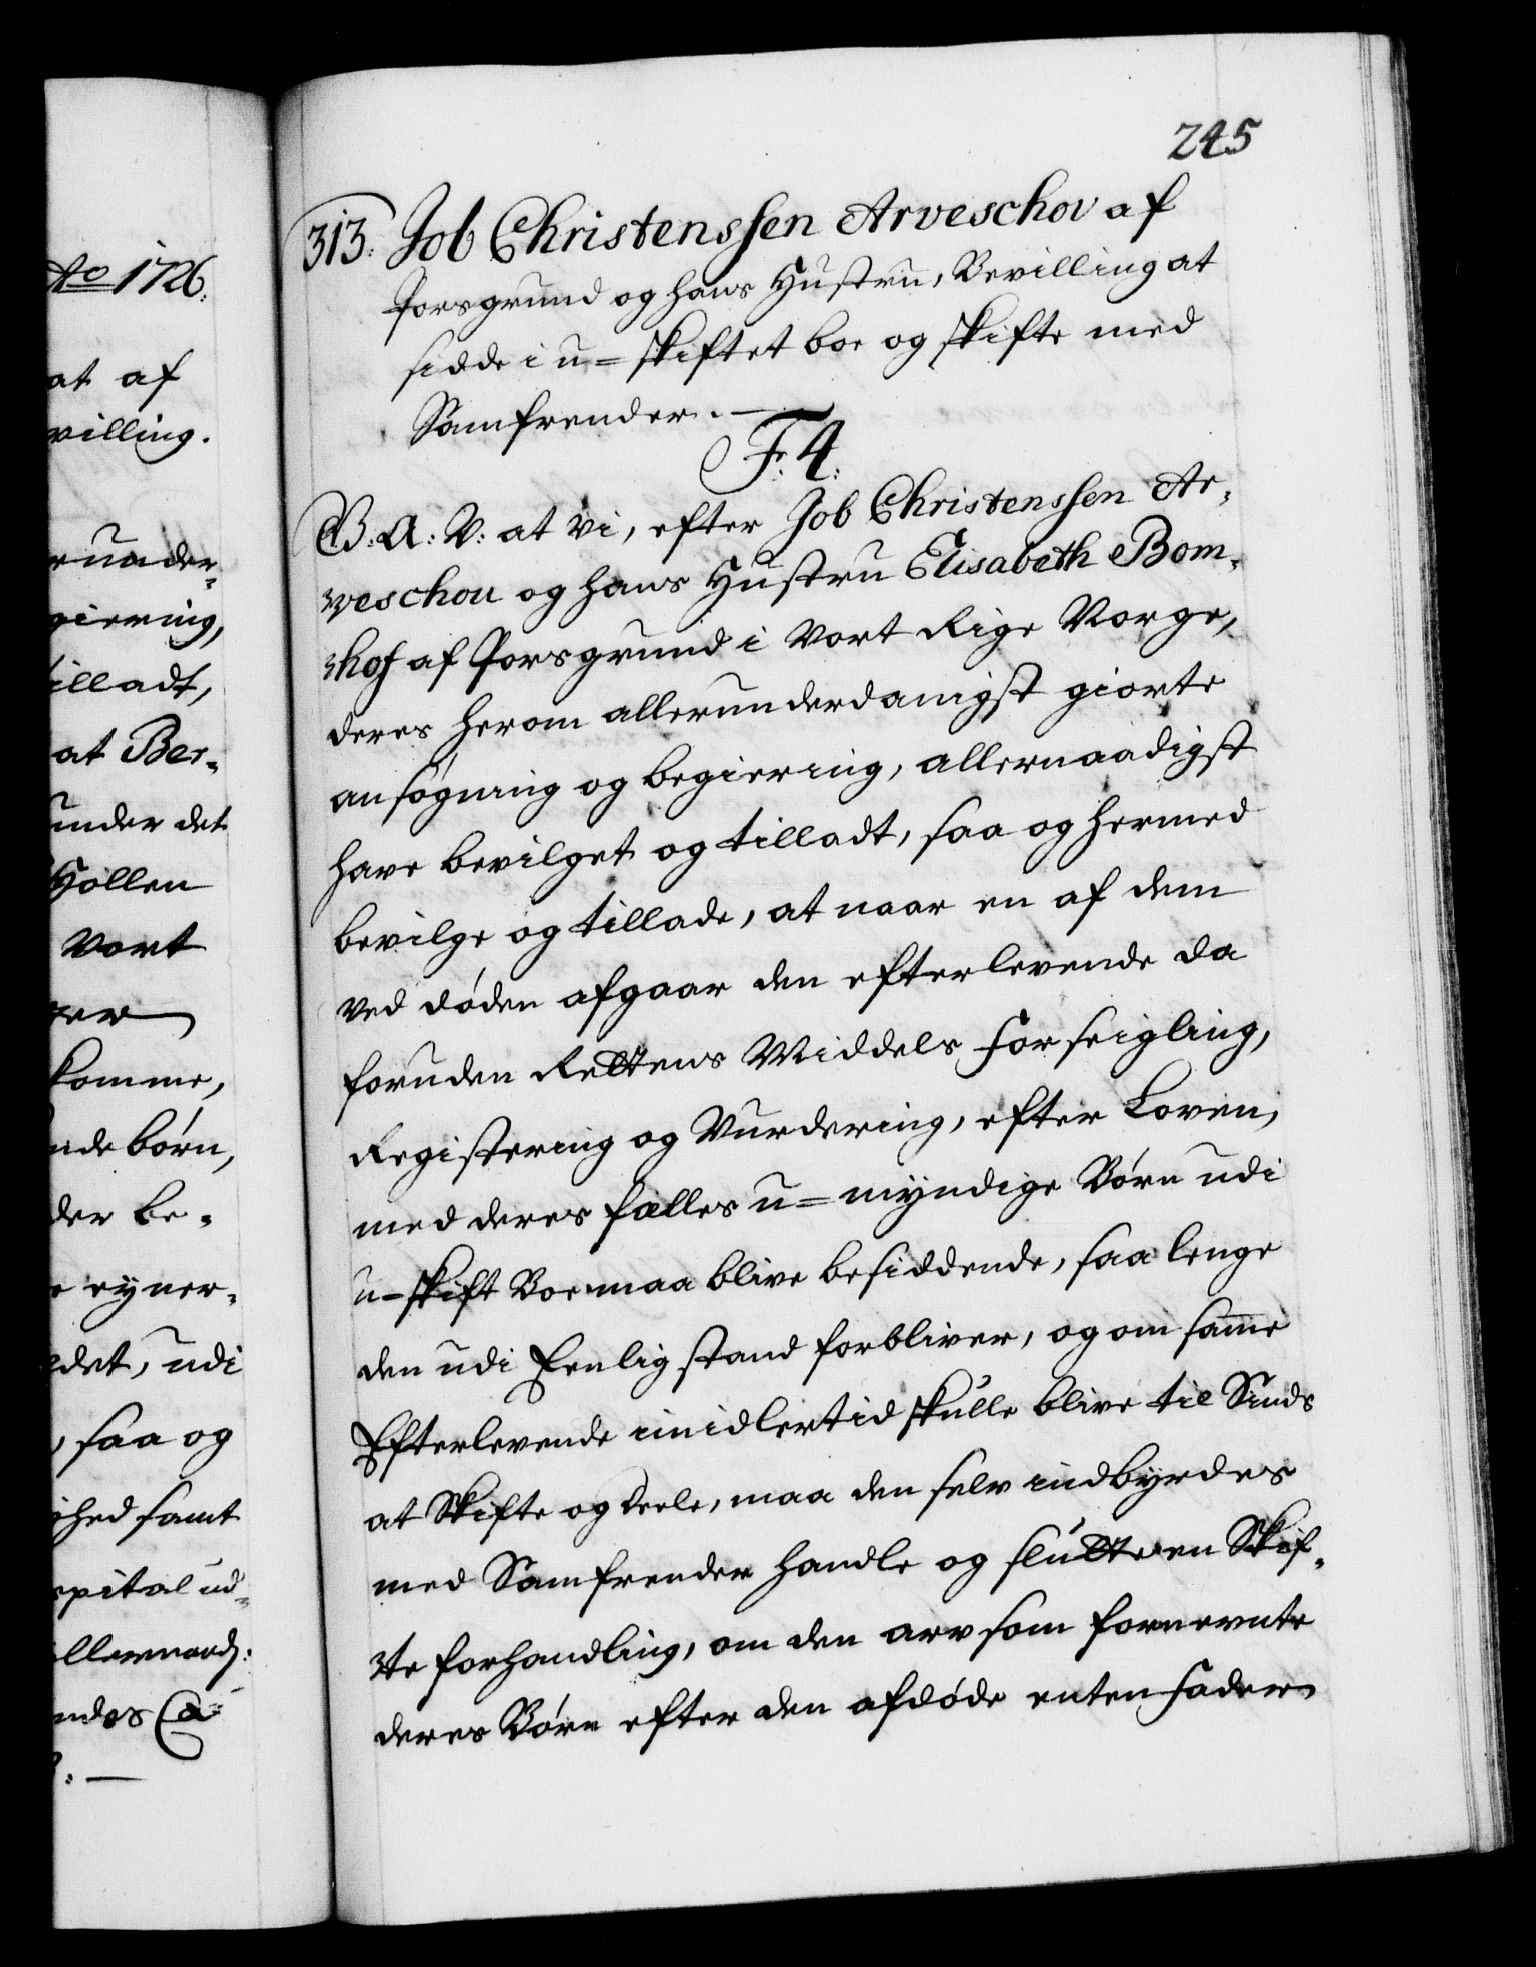 Ao 1726.
at af
villing.
runder-
giering,
illadt,
at Ber-
under det
Hollen
Vort
komme,
nde børn,
der be-
e eyner-
det, udi
, saa og
hed samt
spital ud-
llernaad:
ndes Ca-
245
313. Job Christenssen Arveschou af
Porsgrund og hans Hustru, Bevilling at
sidde i u=skiftet boe og skifte med
Samfrender.
F: 4:
G. A: V: at vi, efter Job Christenssen Ar-
veschou og hans Hustru Elisabeth Bom-
hof af Porsgrund i Vort Rige Norge,
deres herom allerunderdanigst giorte
ansøgning og begiering, allernaadigst
have bevilget og tilladt, saa og hermed
bevilge og tillade, at naar en af dem
ved døden afgaar den efterlevende da
foruden Rettens Middels forseigling,
Registering og Vurdering, efter Loven,
med deres fælles u=myndige Børn udi
u=skift Boe maa blive besiddende, saa lenge
den udi Eenlig stand forbliver, og om samme
Efterlevende imidlertid skulle blive til Sinds
at Skifte og deele, maa den selv indbyrdes
med Samfrender handle og slutte en Skif-
te forhandling, om den arv som fornevnte
deres Børn efter den afdøde enten fader